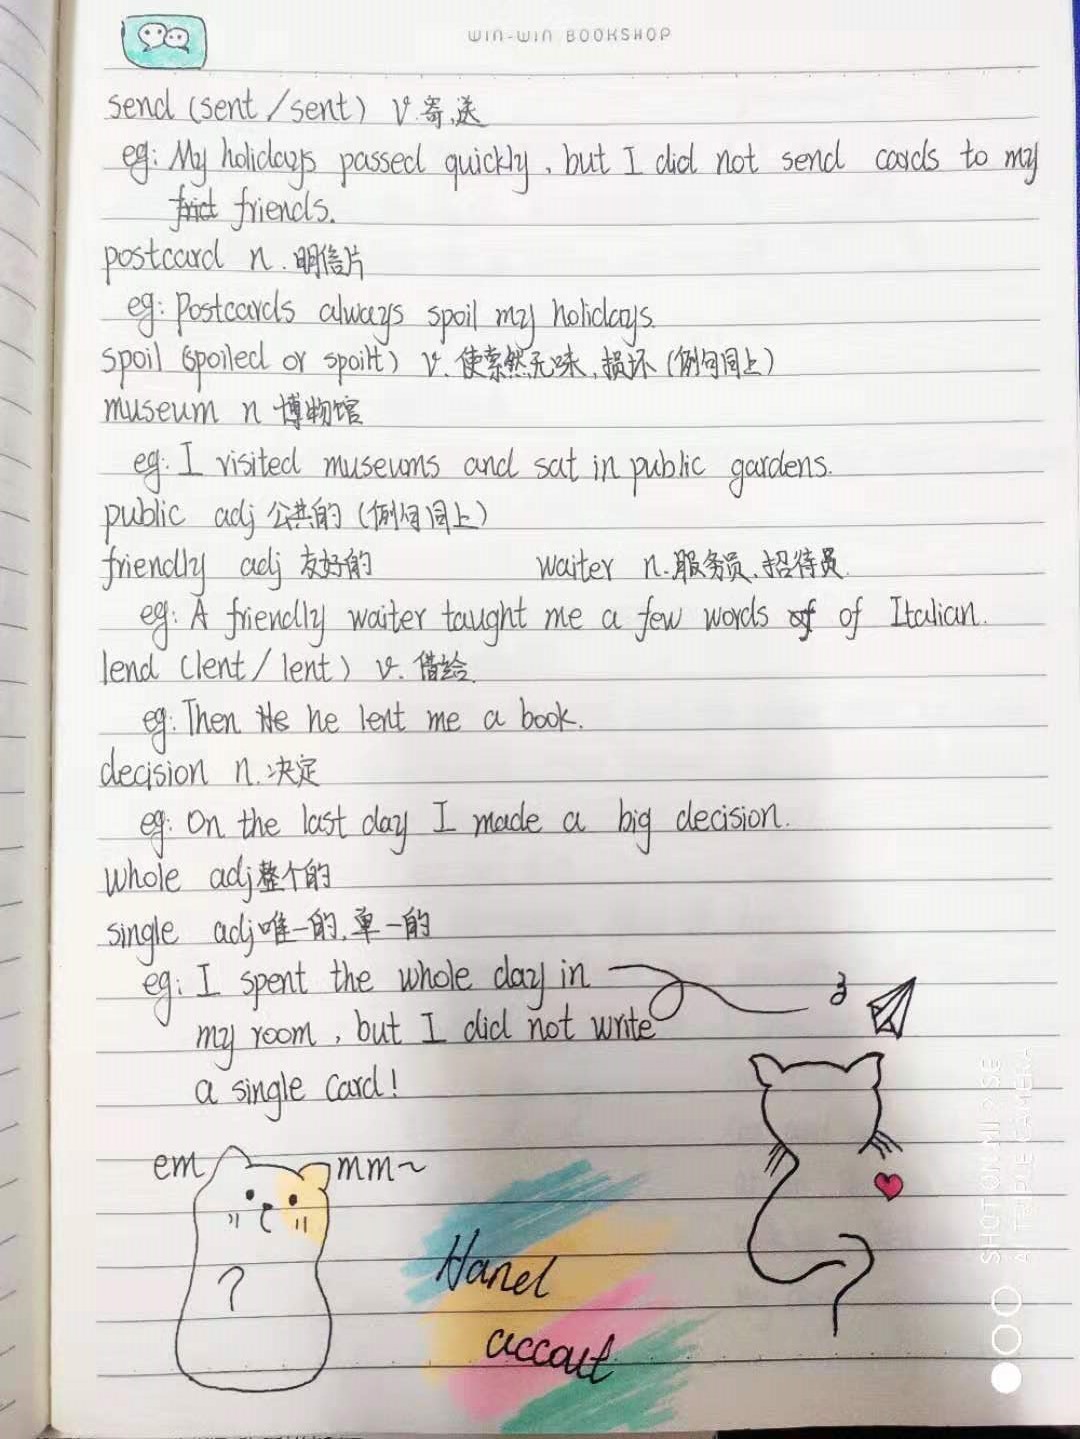 WIN-WIN BOOKSHOP
send (sent / sent) v. 寄,送
eg: My holidays passed quickly, but I did not send cards to my
friends.
postcard n. 明信片
eg: Postcards always spoil my holidays.
spoil (spoiled or spoilt) v. 使索然无味,损坏 (例句同上)
museum n 博物馆
eg: I visited museums and sat in public gardens.
public adj 公共的 (例句同上)
friendly adj 友好的 waiter n. 服务员、招待员
eg: A friendly waiter taught me a few words of of Italian.
lend (lent / lent) v. 借给
eg: Then He he lent me a book.
decision n. 决定
eg: On the last day I made a big decision.
whole adj 整个的
single adj 唯一的,单一的
eg: I spent the whole day in
my room, but I did not write
a single card!
em mm~
?
Hanel
accout
SHOT ON MI 9 SE
AI TRIPLE CAMERA